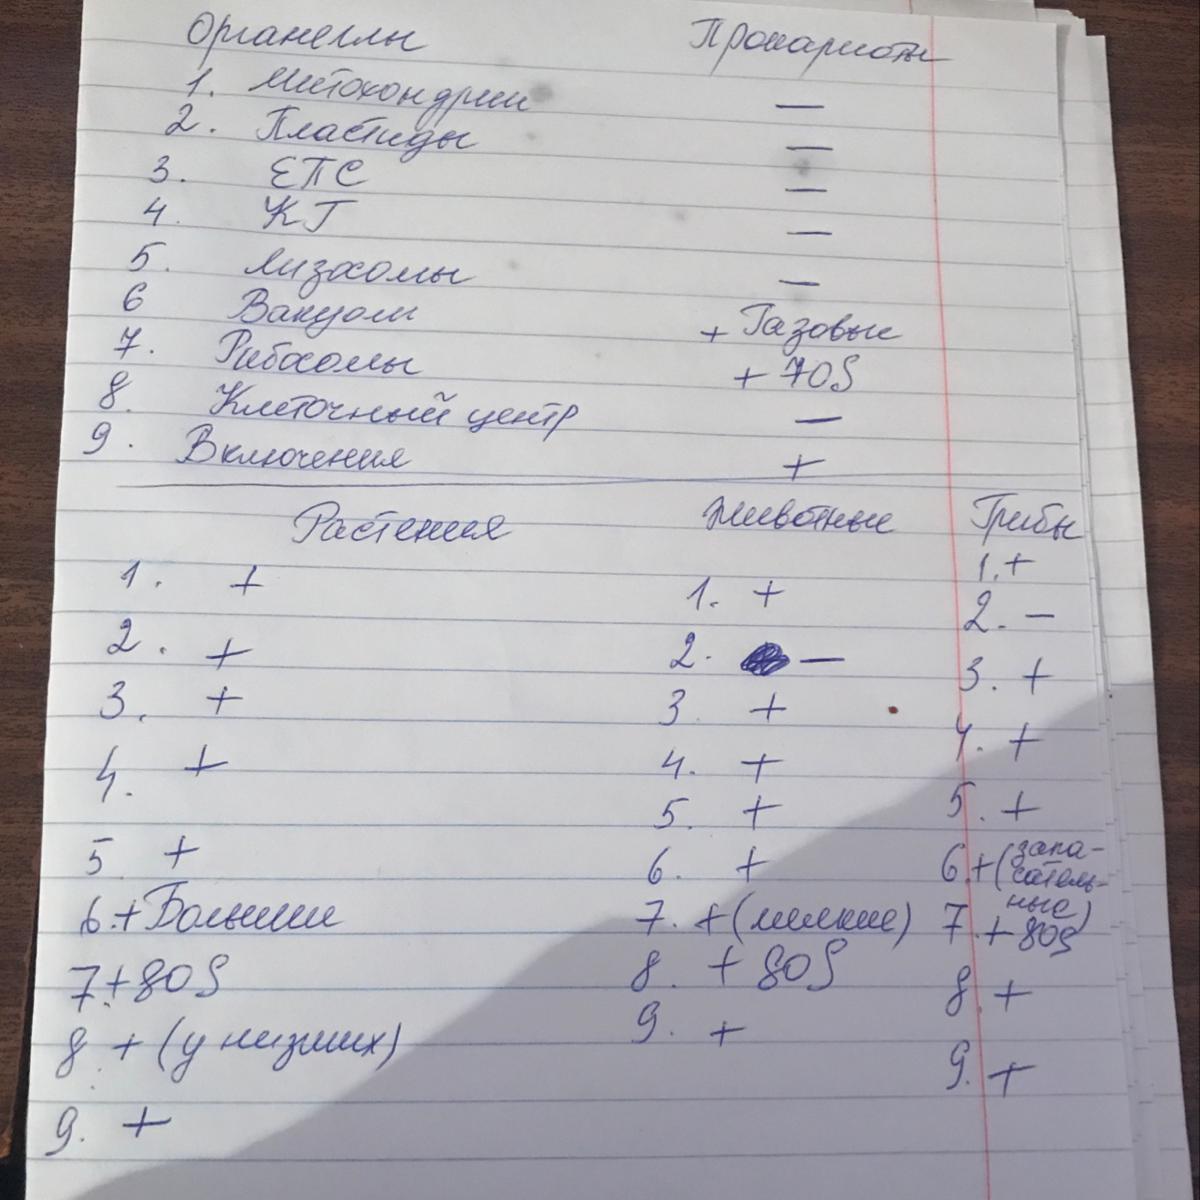 Органеллы Прокариоты
1. Митохондрии —
2. Пластиды —
3. ЕПС —
4. КГ —
5. Лизосомы —
6 Вакуоли + Газовые
7. Рибосомы + 70S
8. Клеточный центр —
9. Включения +
Растения Животные Грибы
1. + 1. + 1. +
2. + 2. — 2. —
3. + 3. + 3. +
4. + 4. + 4. +
5 + 5. + 5. +
6. + Большие 6. + 6 + (запа-
сатель-
ные)
7 + 80S 7. + (мелкие) 7. + 80S
8 + (у низших) 8. + 80S 8. +
9. + 9. + 9. +